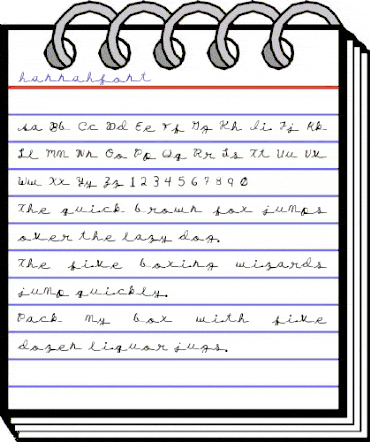 hannahfont
Aa Bb Cc Dd Ee Ff Gg Hh Ii Jj Kk
Ll Mm Nn Oo Pp Qq Rr Ss Tt Uu Vv
Ww Xx Yy Zz 1 2 3 4 5 6 7 8 9 0
The quick brown fox jumps
over the lazy dog.
The five boxing wizards
jump quickly.
Pack my box with five
dozen liquor jugs.